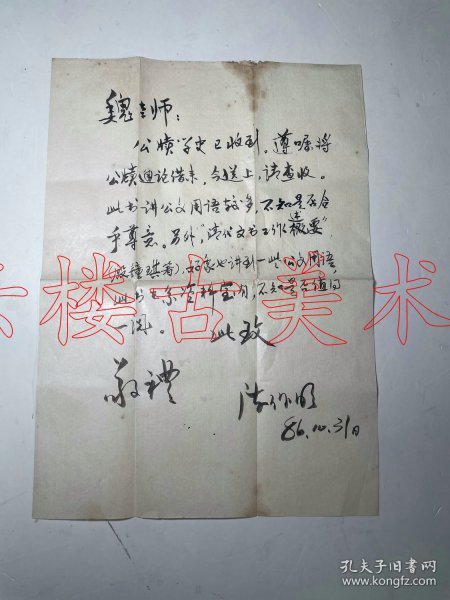 魏老师：
公牍学史已收到，遵嘱将
公牍通论借来，今送上，请查收。
此书讲公文用语较多，不知是否合
乎尊意。另外"清代文书工作述概要"
（殷钟麒著），好象也讲到一些公文用语
此书系资料室有，不知是否值得
一阅。 此致
敬礼
86.10.31日
六楼古美术
孔夫子旧书网
www.kongfz.com